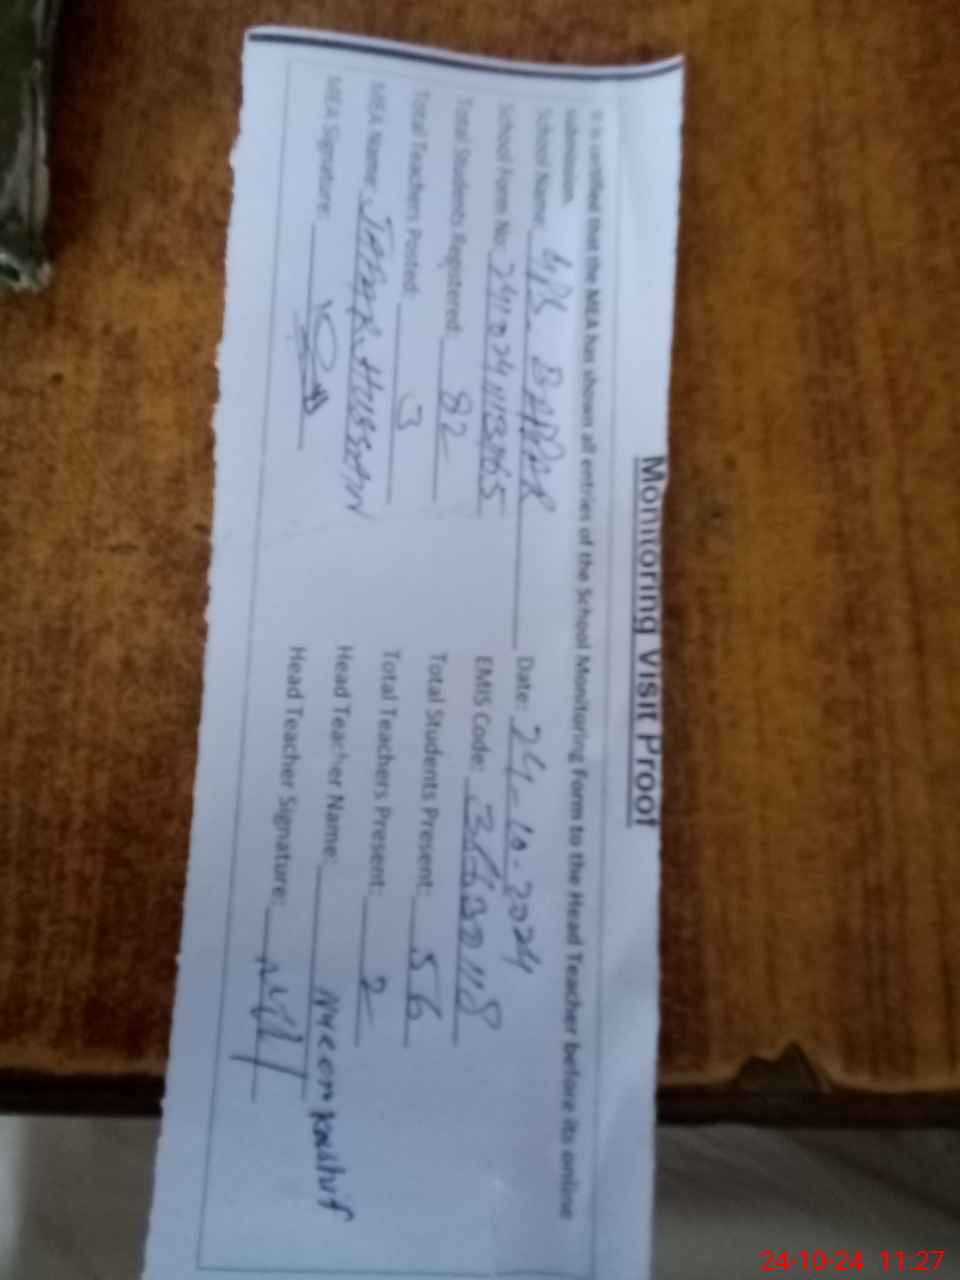 Monitoring Visit Proof
It is certified that the MEA has shown all entries of the School Monitoring Form to the Head Teacher before its online
submission.
School Name: GPS Date: 24-10-2024
School Form No: EMIS Code:
Total Students Registered: 82 Total Students Present: 56
Total Teachers Posted: 3 Total Teachers Present: 2
MEA Name: HUSSAIN Head Teacher Name: Kashif
MEA Signature: Head Teacher Signature:
24-10-24 11:27